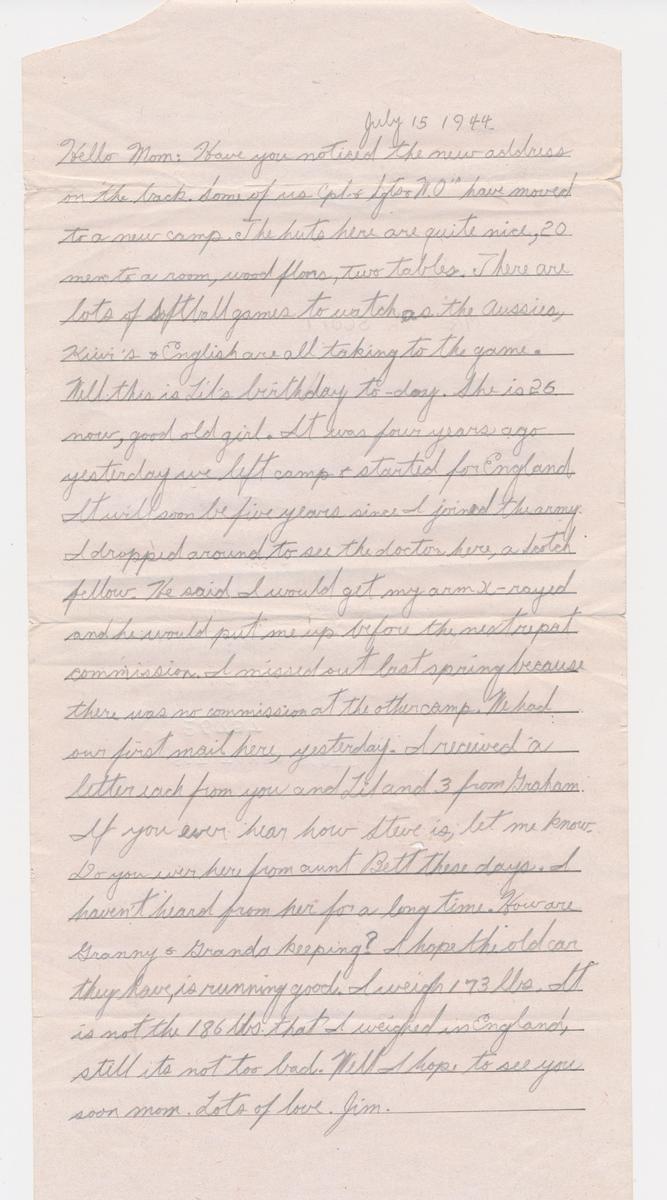 July 15 1944
Hello Mom: Have you noticed the new address
on the back. Some of us Cpl's Sgts & W.O's have moved
to a new camp. The huts here are quite nice, 20
men to a room, wood floors, two tables. There are
lots of softball games to watch as the Aussies,
Kiwi's & English are all taking to the game.
Well this is Lil's birthday to-day. She is 26
now, good old girl. It was four years ago
yesterday we left camp & started for England
It will soon be five years since I joined the army.
I dropped around to see the doctor here, a Scotch
fellow. He said I would get my arm X-rayed
and he would put me up before the next repat
commission. I missed out last spring because
there was no commission at the other camp. We had
our first mail here, yesterday. I received a
letter each from you and Lil and 3 from Graham.
If you ever hear how Steve is, let me know.
Do you ever here from aunt Bett these days. I
haven't heard from her for a long time. How are
Granny & Granda keeping? I hope the old car
they have, is running good. I weigh 173 lbs. It
is not the 186 lbs that I weighed in England,
still its not too bad. Well I hope to see you
soon mom. Lots of love. Jim.